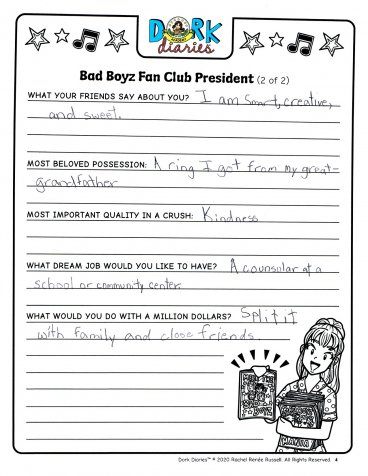 DORK
diaries
Bad Boyz Fan Club President (2 of 2)
WHAT YOUR FRIENDS SAY ABOUT YOU? I am smart, creative,
and sweet.
MOST BELOVED POSSESSION: A ring I got from my great-
grandfather
MOST IMPORTANT QUALITY IN A CRUSH: Kindness
WHAT DREAM JOB WOULD YOU LIKE TO HAVE? A counsular at a
school or community center
WHAT WOULD YOU DO WITH A MILLION DOLLARS? Split it
with family and close friends.
BAD
BOYZ
Dork Diaries™ © 2020 Rachel Renée Russell. All Rights Reserved. 4